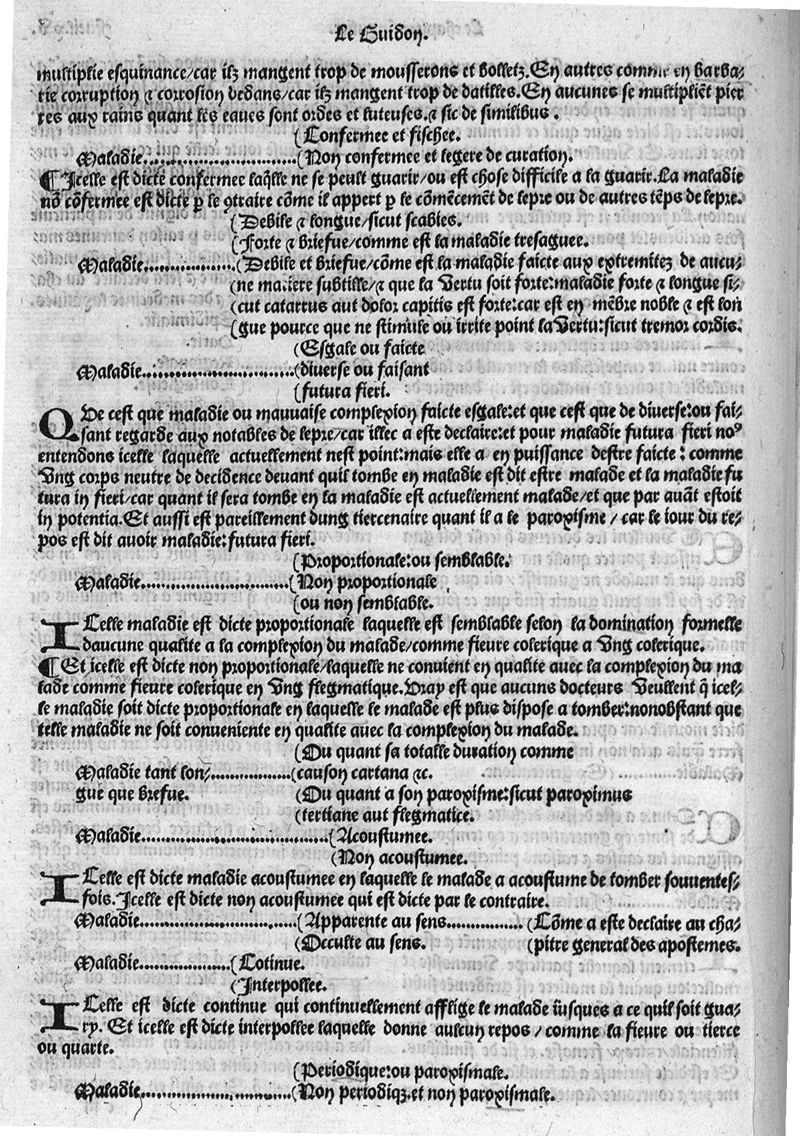 Le Guidon.
multiplie esquinance/car ilz mangent trop de mousserons et bolletz. En autres comme en barba-
rie corruption ⁊ corrosion dedans/car ilz mangent trop de datilles. En aucunes se multipliẽt pier
res aux rains quant les eaues sont ordes et luteuses. ⁊ sic de similibus.
(Confermee et fischee.
Maladie........................(Non confermee et legere de curation.
¶ Icelle est dicte confermee laq̃lle ne se peult guarir/ou est chose difficile a la guarir. La maladie
nõ cõfermee est dicte p̱ le ꝯtraire cõme il appert p̱ le cõmẽcemẽt de lepre ou de autres tẽps de lepre.
(Debile ⁊ longue/sicut scabies.
(Forte ⁊ briefue/comme est la maladie tresaguee.
Maladie..............(Debile et briefue/cõme est la maladie faicte aux extremitez de aucu-
(ne matiere subtille/⁊ que la Vertu soit forte:maladie forte ⁊ longue si-
(cut catarrus aut dolor capitis est forte:car est en mẽbre noble ⁊ est lon
(gue pource que ne stimule ou irrite point la Vertu:sicut tremor cordis.
(Esgale ou faicte
Maladie........................(diverse ou faisant
(futura fieri.
QVe cest que maladie ou mauuaise complexion faicte esgale:et que cest que de diuerse:ou fai-
sant regarde aux notables de lepre/car illec a este declaire:et pour maladie futura fieri noꝰ
entendons icelle laquelle actuellement nest point:mais elle a en puissance destre faicte : comme
Vng corps neutre de decidence deuant quil tombe en maladie est dit estre malade et la maladie fu
tura in fieri/car quant il sera tombe en la maladie est actuellement malade/et que par auãt estoit
in potentia. Et aussi est pareillement dung tiercenaire quant il a le paroxisme/car le iour du re-
pos est dit auoir maladie:futura fieri.
(Proportionale:ou semblable.
Maladie........................(Non proportionale
(ou non semblable.
ICelle maladie est dicte proportionale laquelle est semblable selon la domination formelle
daucune qualite a la complexion du malade/comme fieure colerique a Vng colerique.
¶ Et icelle est dicte non proportionale/laquelle ne conuient en qualite auec la complexion du ma
lade comme fieure colerique en Vng flegmatique. Vray est que aucuns docteurs Veullent q̃ icel-
le maladie soit dicte proportionale en laquelle le malade est plus dispose a tomber:nonobstant que
telle maladie ne soit conueniente en qualite auec la complexion du malade.
(Ou quant sa totalle duration comme
Maladie tant lon-.............(causon cartana ⁊c.
gue que brefue.
(Ou quant a son paroxisme:sicut paroximus
(tertiane aut flegmatice.
Maladie..............................(Acoustumee.
(Non acoustumee.
ICelle est dicte maladie acoustumee en laquelle le malade a acoustume de tomber souuentes-
fois. Icelle est dicte non acoustumee qui est dicte par le contraire.
Maladie........................(Apparente au sens............(Cõme a este declaire au cha-
(Occulte au sens. (pitre general des apostemes.
Maladie..............(Cotinue.
(Interpollee.
ICelle est dicte continue qui continuellement afflige le malade iusques a ce quil soit gua-
ry. Et icelle est dicte interpollee laquelle donne aulcun repos/comme la fieure ou tierce
ou quarte.
(Periodique:ou paroxismale.
Maladie........................(Non periodiqꝫ.et non paroxismale.